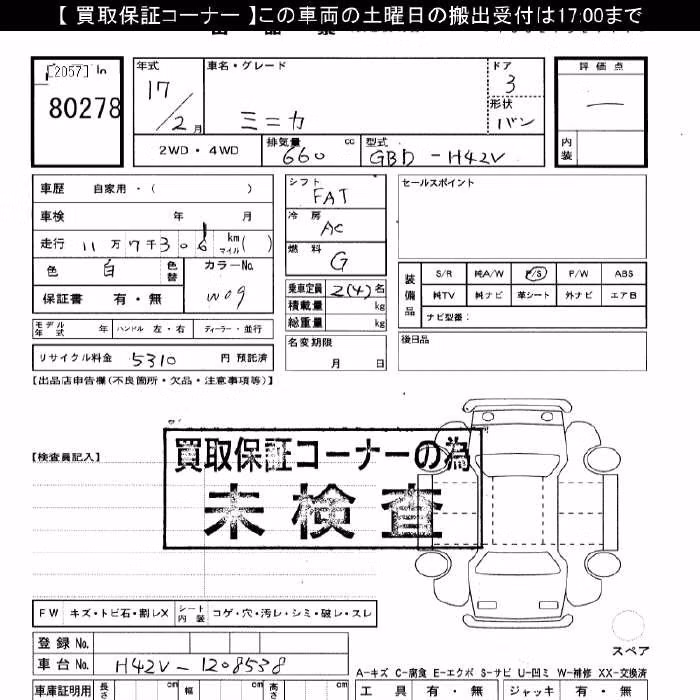 【 買取保証コーナー 】この車両の土曜日の搬出受付は17:00まで
[2057] In
80278
年式 17 / 2月
車名・グレード ミニカ
ドア 3
形状 バン
評価点 —
内装
2WD・4WD
排気量 660 cc
型式 GBD-H42V
車歴 自家用・( )
車検 年 月
走行 11万7千306 km マイル ( )
色 白 色替
カラーNo. W09
保証書 有・無
モデル年式 年 ハンドル 左・右 ディーラー・並行
リサイクル料金 5310 円 預託済
シフト FAT
冷房 AC
燃料 G
乗車定員 2(4) 名
積載量 kg
総重量 kg
名変期限 月 日
セールスポイント
装備品
S/R 純A/W P/S P/W ABS
純TV 純ナビ 革シート 外ナビ エアB
ナビ型番:
後日品
【出品店申告欄(不良箇所・欠品・注意事項等)】
【検査員記入】
買取保証コーナーの為
未検査
FW キズ・トビ石・割レX シート内装 コゲ・穴・汚レ・シミ・破レ・スレ
スペア
登録No.
車台No. H42V-1208538
A-キズ C-腐食 E-エクボ S-サビ U-凹ミ W-補修 XX-交換済
車庫証明用 長さ cm 幅 cm 高さ cm
工具 有・無 ジャッキ 有・無